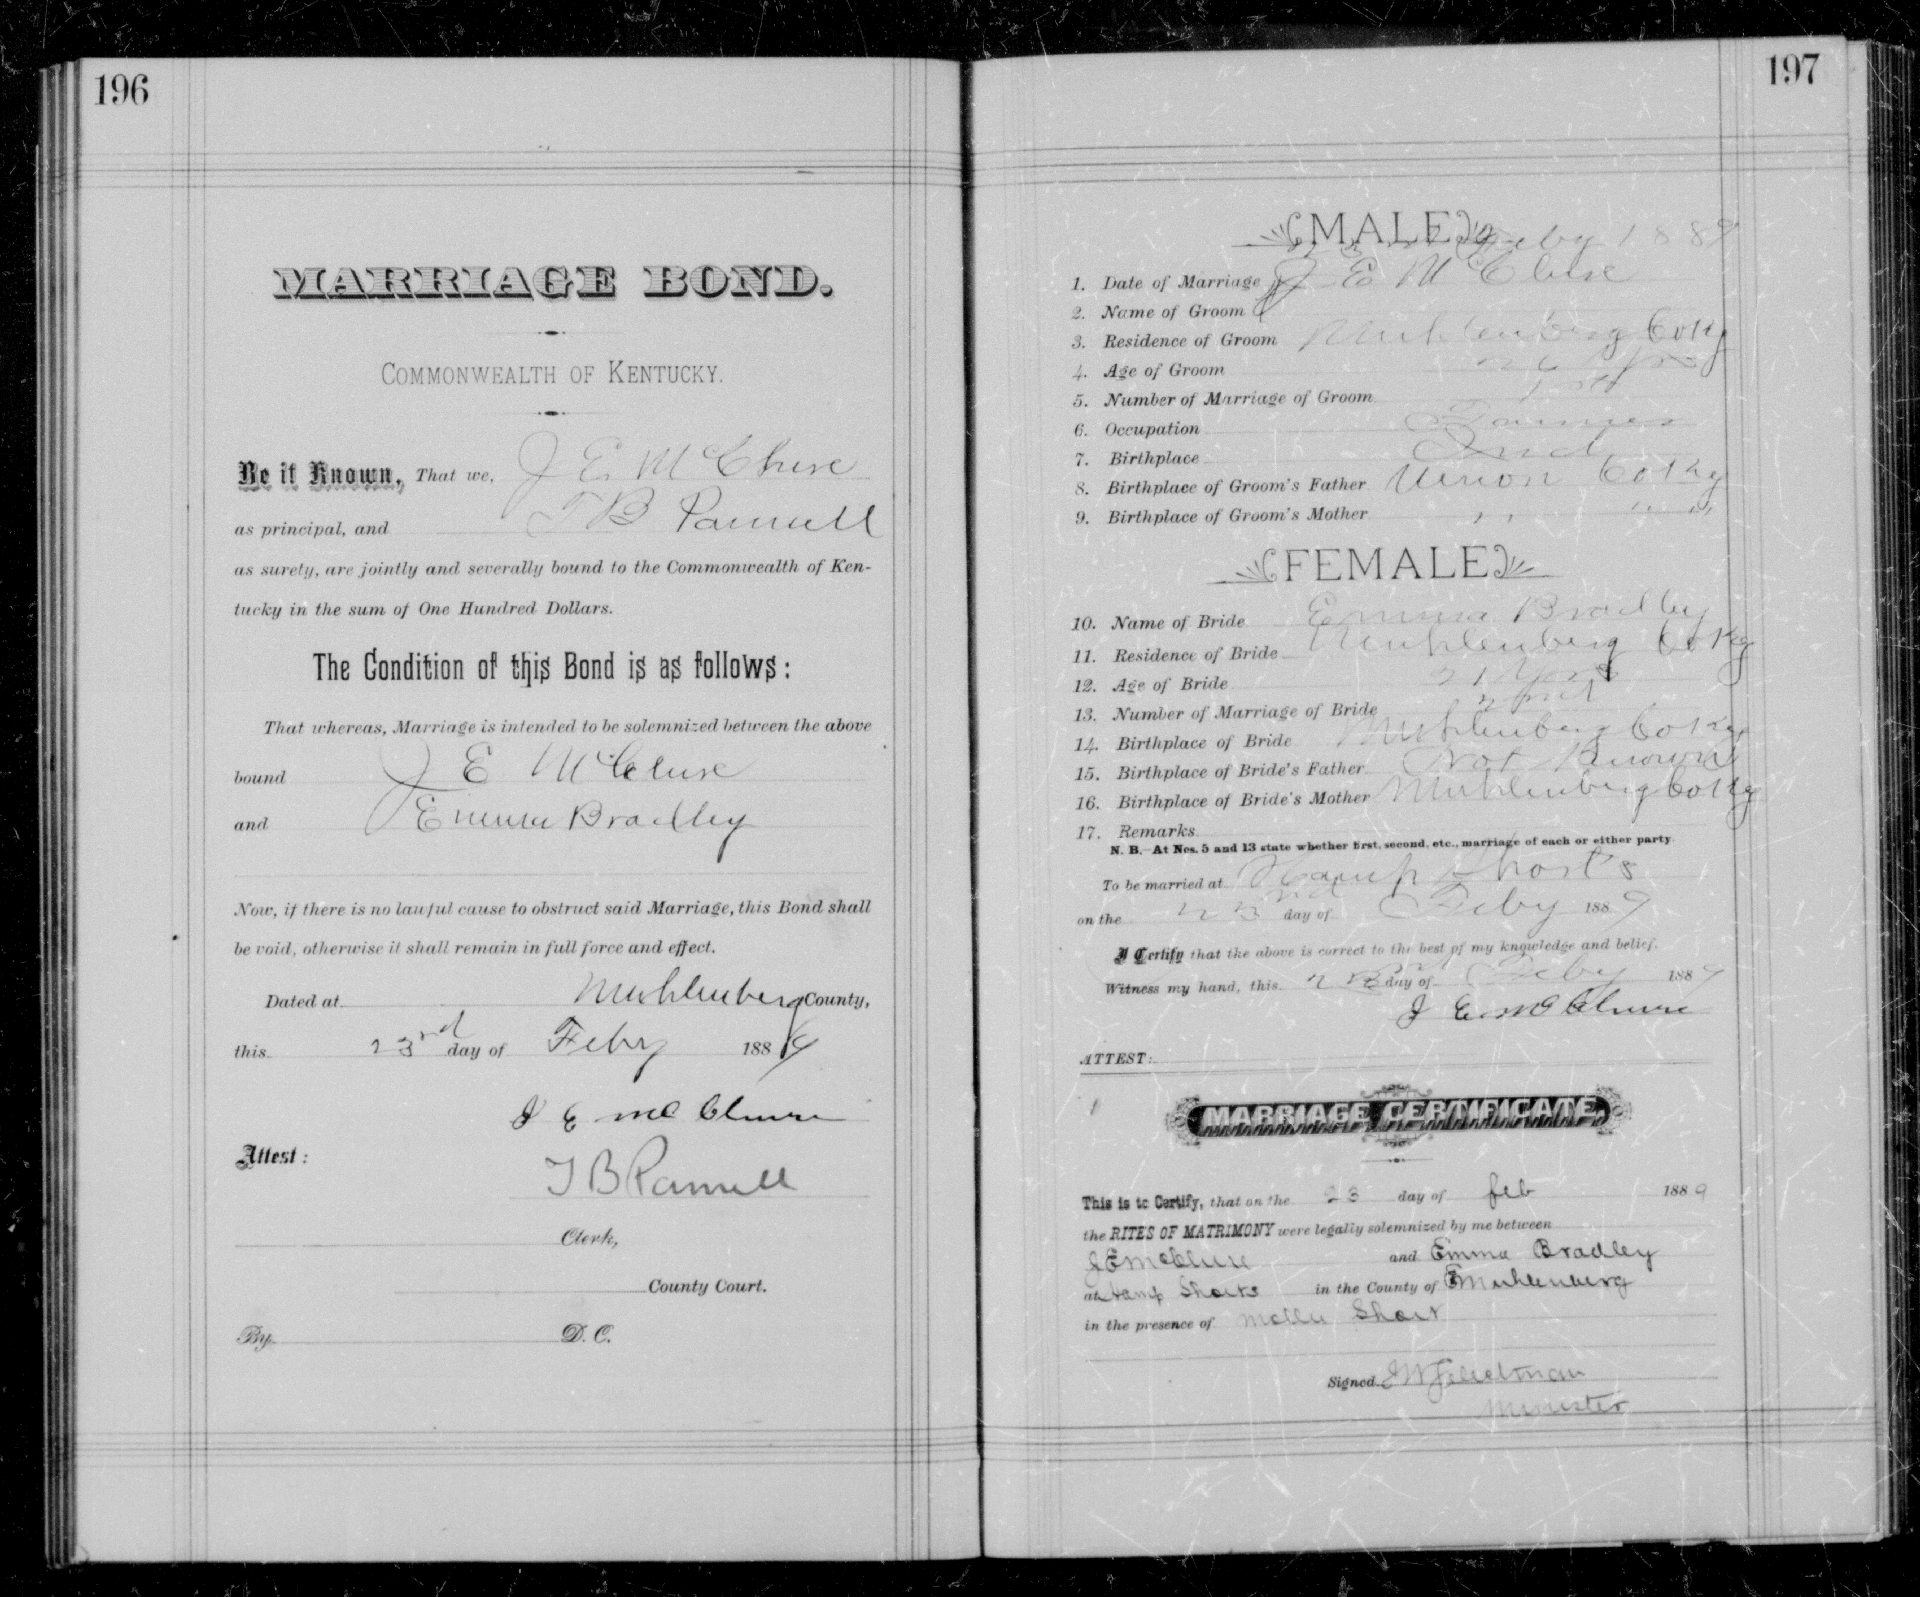 196
MARRIAGE BOND.
COMMONWEALTH OF KENTUCKY.
Be it Known, That we, J E McClure
as principal, and T B Pannell
as surety, are jointly and severally bound to the Commonwealth of Ken-
tucky in the sum of One Hundred Dollars.
The Condition of this Bond is as follows:
That whereas, Marriage is intended to be solemnized between the above
bound J E McClure
and Emma Bradley
Now, if there is no lawful cause to obstruct said Marriage, this Bond shall
be void, otherwise it shall remain in full force and effect.
Dated at Muhlenberg County,
this 23rd day of Feby 1889
J E McClure
Attest:
T B Pannell
Clerk,
County Court.
By D. C.
197
MALE
1. Date of Marriage Feby 1889
2. Name of Groom J E McClure
3. Residence of Groom Muhlenberg Co Ky
4. Age of Groom 26 yrs
5. Number of Marriage of Groom 1st
6. Occupation Farmer
7. Birthplace Ind
8. Birthplace of Groom's Father Union Co Ky
9. Birthplace of Groom's Mother " " "
FEMALE
10. Name of Bride Emma Bradley
11. Residence of Bride Muhlenberg Co Ky
12. Age of Bride 21 yrs
13. Number of Marriage of Bride 2nd
14. Birthplace of Bride Muhlenberg Co Ky
15. Birthplace of Bride's Father Not Known
16. Birthplace of Bride's Mother Muhlenberg Co Ky
17. Remarks
N. B.—At Nos. 5 and 13 state whether first, second, etc., marriage of each or either party.
To be married at Hamp Shorts
on the 23rd day of Feby 1889
I Certify that the above is correct to the best of my knowledge and belief.
Witness my hand, this 23rd day of Feby 1889
J E McClure
ATTEST:
MARRIAGE CERTIFICATE.
This is to Certify, that on the 23 day of feb 1889
the RITES OF MATRIMONY were legally solemnized by me between
J E McClure and Emma Bradley
at Hamp Shorts in the County of Muhlenberg
in the presence of Mollie Short
Signed J W
Minister